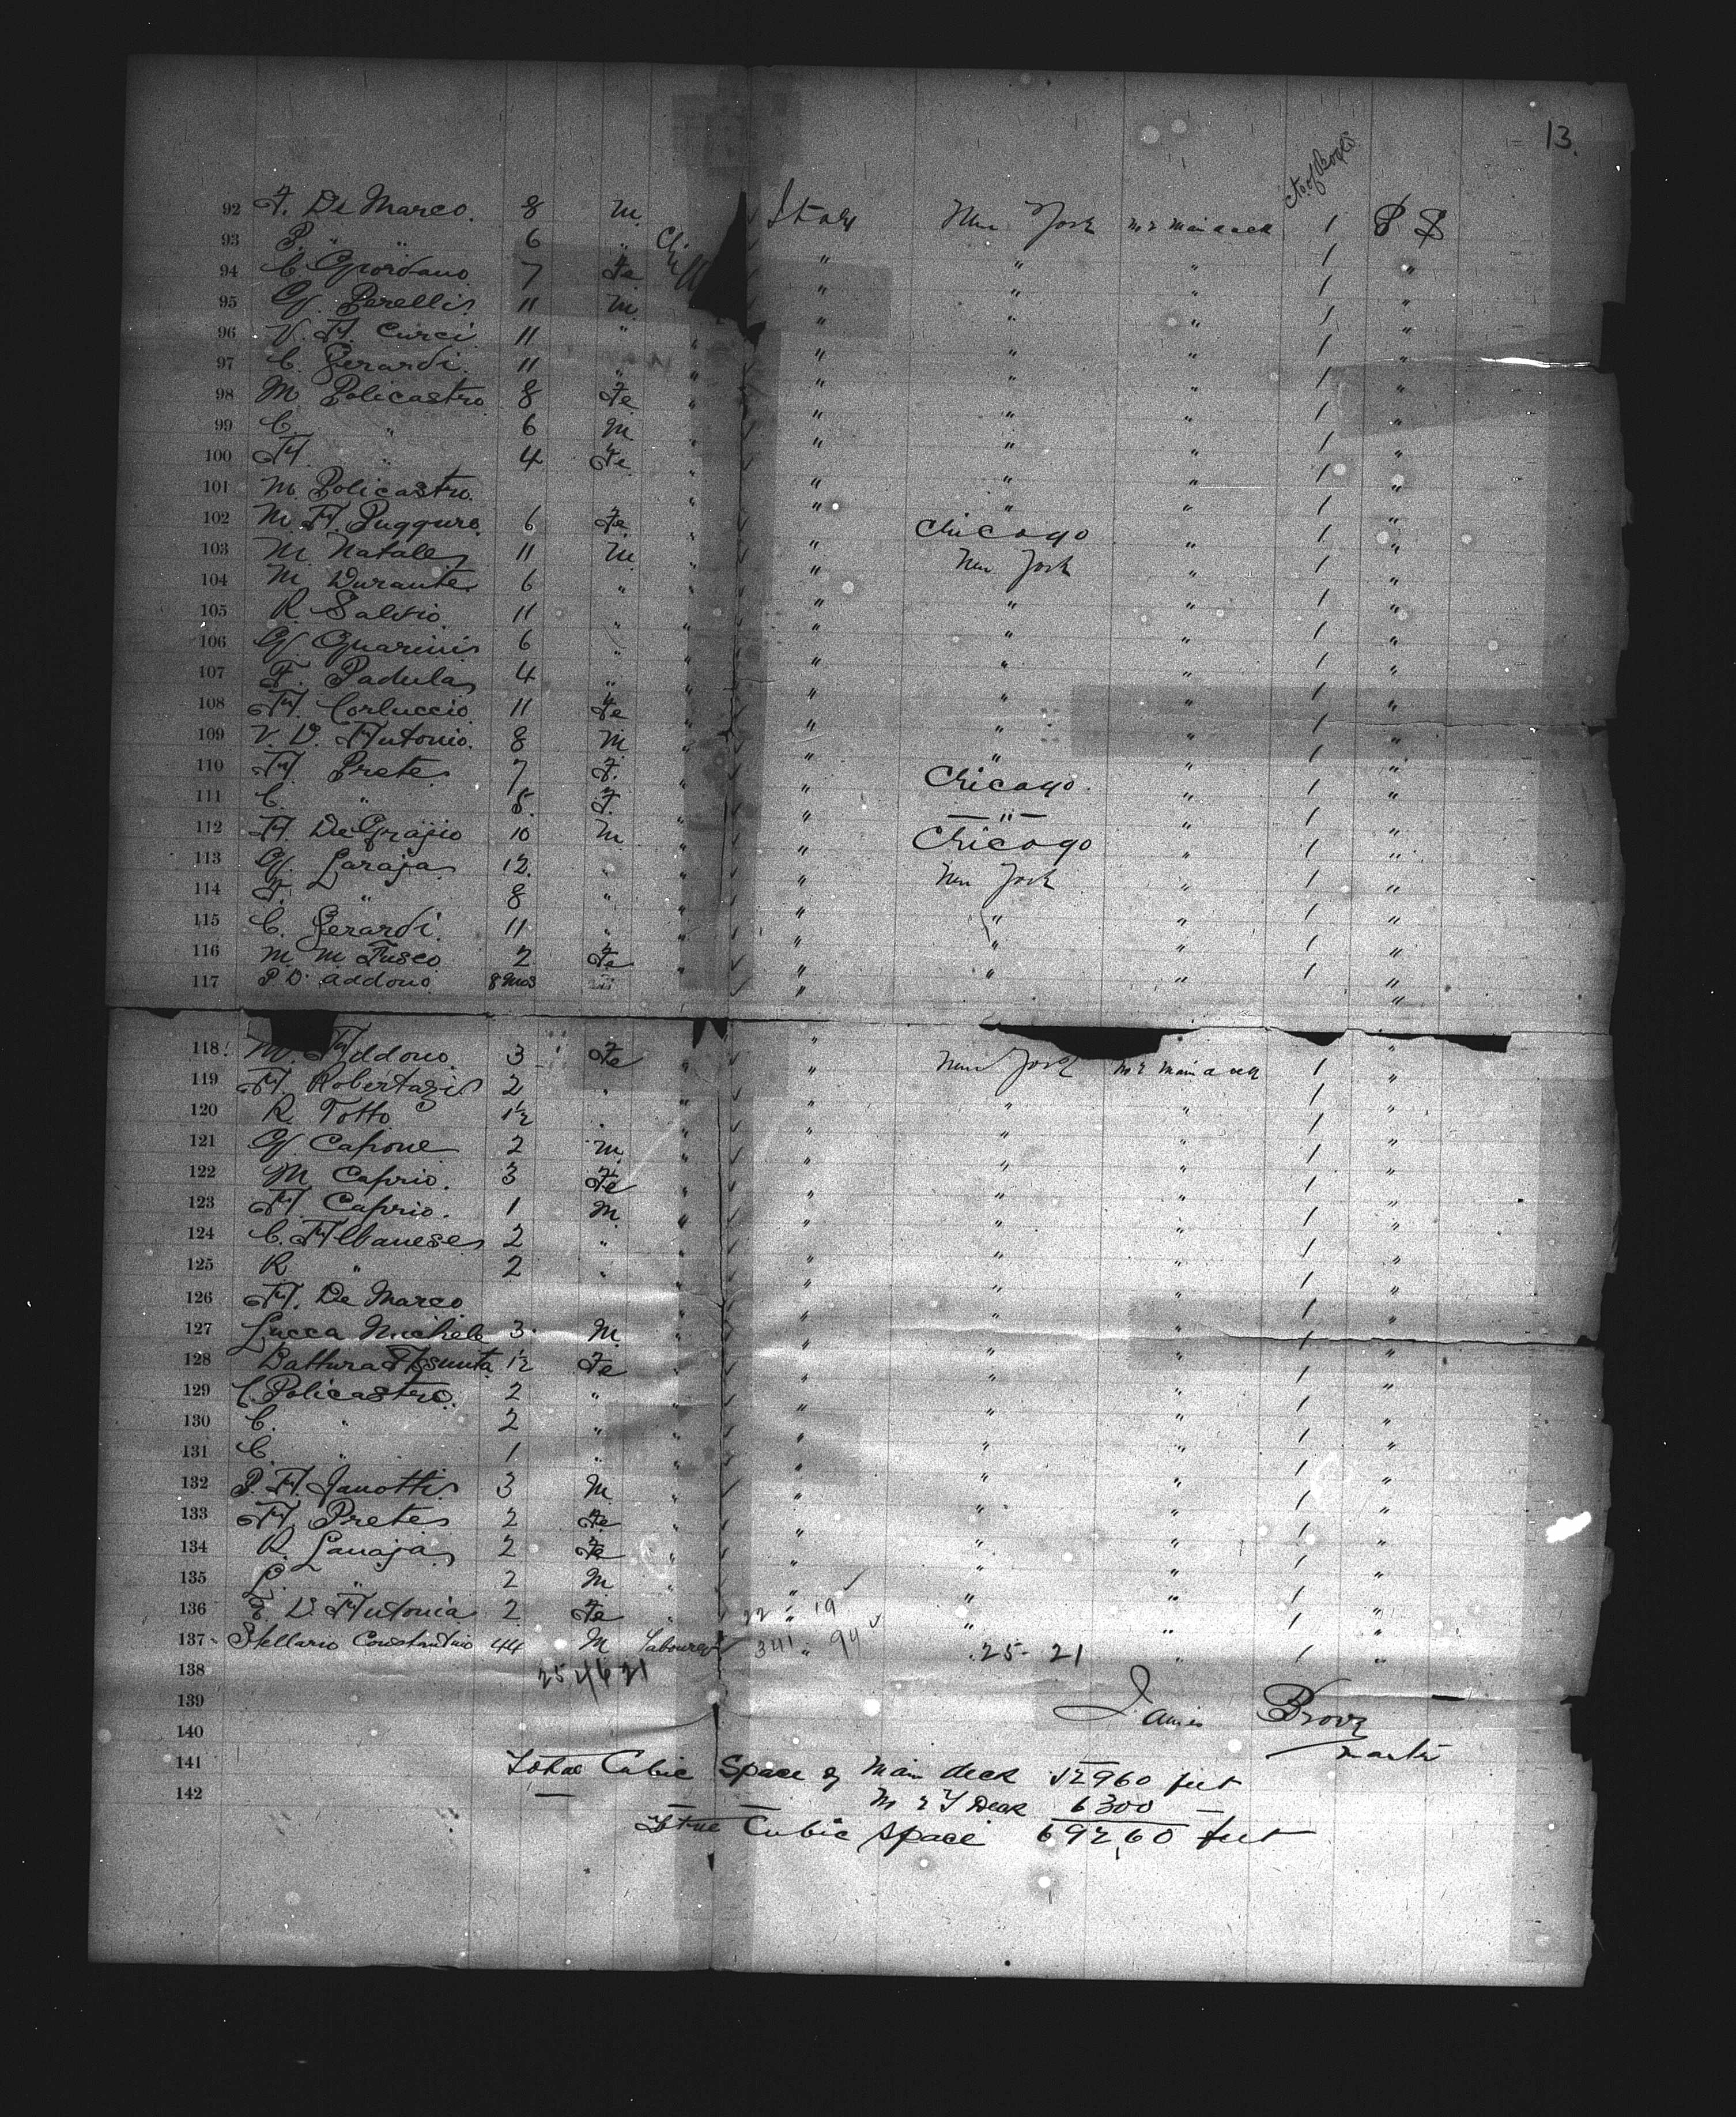 13.
cts of Boxes
92 F. De Marco. 8 M. Italy New York 1
93 P. " " 6 " " " " 1 "
94 C. Giordano 7 Fe " " " 1 "
95 G. Perelli 11 M. " " " 1 "
96 V. A. Curci 11 " " " " " 1 "
97 C. Gerardi. 11 " " " " " 1 "
98 M Policastro 8 Fe " " " " 1 "
99 C. " 6 M " " " " 1 "
100 A. " 4 Fe. " " " " 1 "
101 M. Policastro. " " " " 1 "
102 M. A. 6 Fe. " " Chicago " 1 "
103 M. Natale 11 M. " " New York " 1 "
104 M. Durante 6 " " " " " 1 "
105 R. Salvio. 11 " " " " " 1 "
106 G. Guarini 6 " " " " " 1 "
107 F. Padula 4 " " " " " 1 "
108 A. Corluccio 11 Fe " " " " 1 "
109 V. D. Antonio. 8 M " " " " 1 "
110 A. Prete 7 F. " " Chicago " 1 "
111 C. " 8. F. " " — " — " 1 "
112 A. De Grazio 10 M " " Chicago " 1 "
113 G. Laraja 12. " " " New York " 1 "
114 F. " 8 " " " " " 1 "
115 C. Gerardi. 11 " " " " " 1 "
116 M M Fusco 2 Fe " " " " 1 "
117 P D addono. 8 Mos " "
118 M. Addono 3 Fe " " New York 1 "
119 A. Robertazi 2 " " " " " 1 "
120 R. Totto 1½ " " " " " 1 "
121 G. Capone 2 M. " " " " 1 "
122 M Caprio. 3 Fe " " " " 1 "
123 A. Caprio. 1 M. " " " " 1 "
124 C. Albanese 2 " " " " " 1 "
125 R " 2 " " " " " 1 "
126 A. De Marco " " " " 1 "
127 Lucca Michele 3. M. " " " " 1 "
128 Assunta 1½ Fe " " " " 1 "
129 C. Policastro. 2 " " " " " 1 "
130 C. " 2 " " " " " 1 "
131 C. " 1 " " " " " 1 "
132 P. A. Janotti 3 M. " " " " 1 "
133 A. Prete 2 Fe. " " " " 1 "
134 R. Lanaja 2 Fe " " " " 1 "
135 L. " 2 M. " " " " 1 "
136 F. D. Antonia 2 Fe " " " " 1 "
22 19
137 Stellario Constantino 44 M Labourer " " 1 "
341 94 25- 21
138
139
James Brown
140
Master
141 Total Cubic Space of Main deck 62960 feet
142 Deck 6300
Total Cubic Space 69260 feet